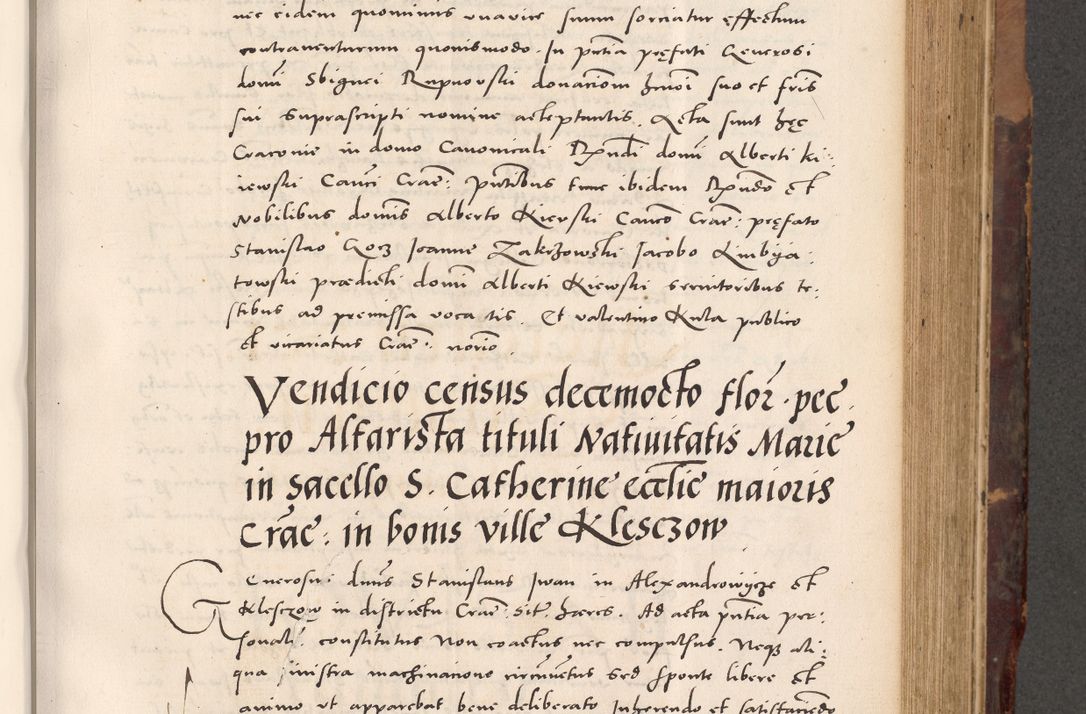 nec eidem quominus vnavice suum sorciatur effectum
contrauenturum quouismodo. In pñtia pręfati Generosi
domi Sbignei Rupnovski donacioñ hmoi suo et fris
sui suprascripti nomine acceptantis. Acta sunt hęc
Cracouie in domo Canonicali Rñdi domi Alberti Ki:
iewski Canci Crac: pñtibus tunc ibidem Rñdo et
Nobilibus domis Alberto Kiewski Canco Crac: pręfato
Stanislao Gocz Joanne Zakrzowski Jacobo
towski prædicti domi Alberti Kiewski seruitoribus te:
stibus ad premissa vocatis. Et valentino Kula publico
et vicariatus Crac: norio
Vendicio census decemocto flor. pec.
pro Altarista tituli Natiuitatis Marie
in sacello S. Catherine ecctie maioris
Crac: in bonis ville Klesczow
Generosus dnus Stanislaus Iwan in Alexandrowycze et
Klesczow in districtu Crac: sit: hæres. Ad acta pñtia per:
sonali constitutus Non coactus nec compulsus. Neq3 ali:
qua sinistra machinacione circumuentus sed sponte libere et
animo vt apparebat bene deliberato Inherendo et satisfaciendo